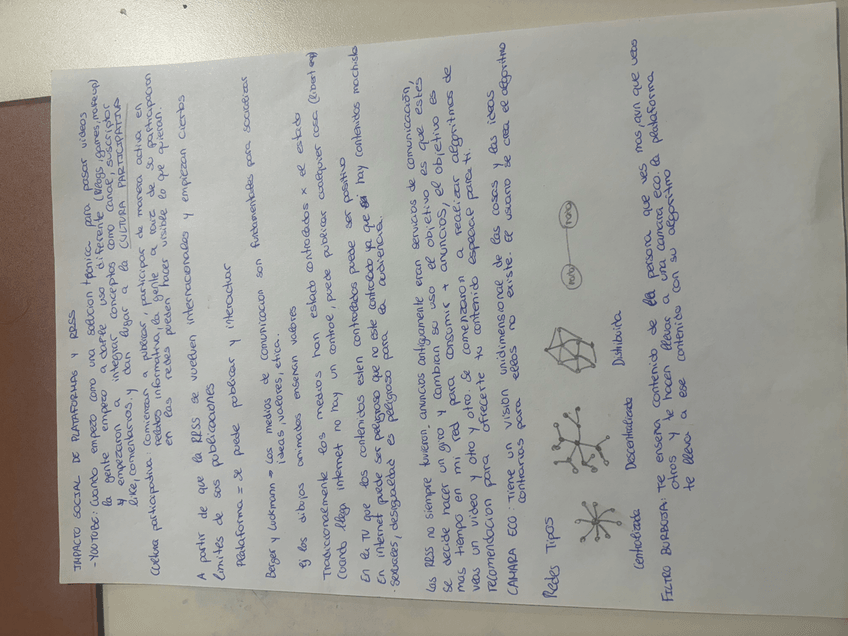 IMPACTO SOCIAL DE PLATAFORMAS Y RRSS
- YOUTUBE: Cuando empezo como una solucion tecnica para pasar videos
la gente empezo a darle uso diferente (blogs, games, make up)
y empezaron a integrar conceptos como canal, suscriptor
like, comentarios. y dan lugar a la CULTURA PARTICIPATIVA
Cultura participativa: comienzan a publicar, participar de manera activa en
relatos informativa, la gente a raiz de su participacion
en las redes pueden hacer visible lo que quieran.
A partir de que la RRSS se vuelven internacionales y empiezan ciertos
limites de sus publicaciones
Plataforma = Se puede publicar y interactuar
Berger y Luckmann → Los medios de comunicacion son fundamentales para socializar
ideas, valores, etica.
ej los dibujos animados enseñan valores
Tradicionalmente los medios han estado controlados x el estado
Cuando llega internet no hay un control, puede publicar cualquier cosa
En la TV que los contenidos esten controlados puede ser positivo
En internet puede ser peligroso que no este controlado ya que hay contenidos machista
desigualdad es peligroso para la audiencia.
Las RRSS no siempre tuvieron anuncios antiguamente eran servicios de comunicación,
se decide hacer un giro y cambian su uso el objetivo es que estes
mas tiempo en mi red para consumir + anuncios, el objetivo es
veas un video y otro y otro. Se comenzaron a realizar algoritmos de
recomendacion para ofrecerte tu contenido especial para ti.
CAMARA ECO: Tiene un vision unidimensional de las cosas y las ideas
contrarias para ellos no existe. El usuario se crea el algoritmo
Redes Tipos
Centralizada Descentralizada Distribuida
FILTRO BURBUJA: Te enseña contenido de la persona que ves mas, aun que veas
otros y te hacen llevar a una camara eco. la plataforma
te lleva a ese contenido con su algoritmo